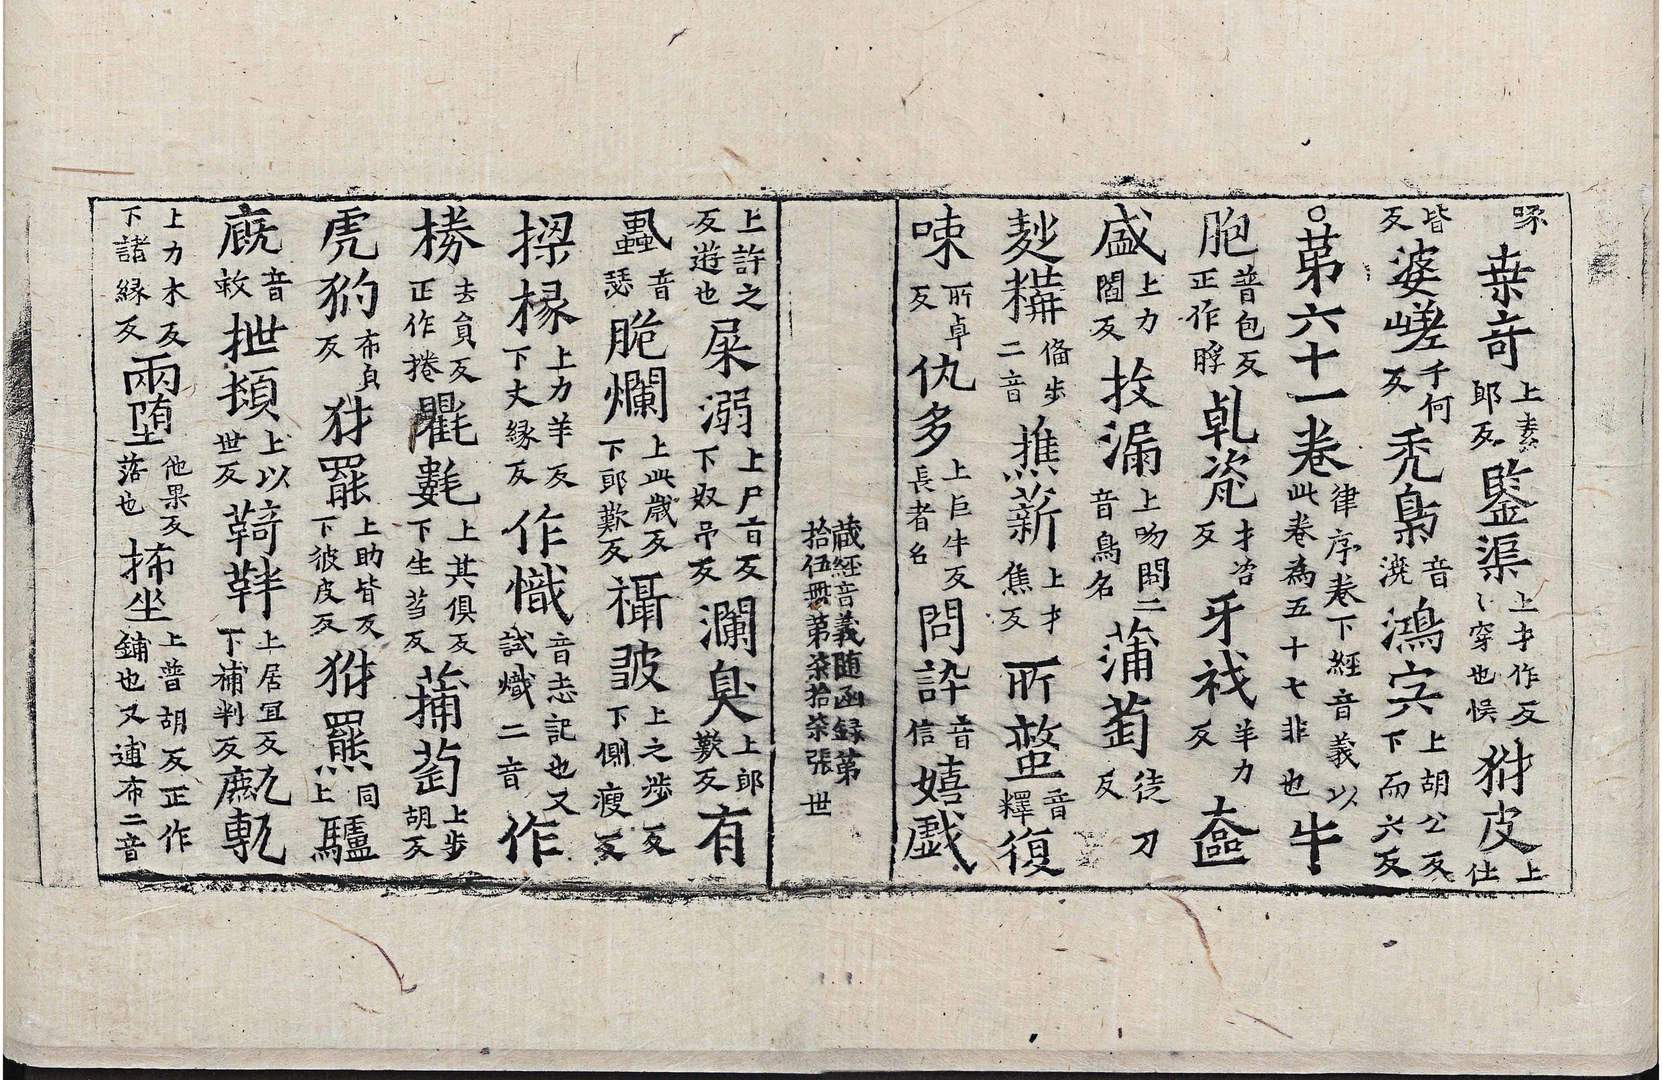 啄桒竒上素郎反鑒渠上才作反〻穿也悮犲皮上仕
皆反婆嵯千何反秃梟音澆鴻宍上胡公反下而六反
○苐六十一卷律序卷下經音義以此卷為五十七非也牛
胞普包反正作脬乹瓷才咨反牙祴羊力反㿿
盛上力閻反抆漏上昒問二音鳥名蒲萄徒刀反
麨䊩俻步二音燋薪上才焦反所螫音釋復
㖓所卓反仇多上巨牛反長者名問訲音信嬉戲
蔵經音義随函録第拾伍無苐柒拾柒張 世
上許之反遊也屎溺上尸旨反下奴吊反瀾臭上郎歎反有
蝨音瑟脆爛上此歳反下郎歎反襵皷上之渉反下側瘦反
𢱢椽上力羊反下丈縁反作幟音志記也又試熾二音作
棬去負反正作捲氍㲣上其俱反下生芻反蒱萄上步胡反
虎犳布皃反犲羆上助皆反下彼皮反犲羆同上驢
廐音救抴頍上以世反䩭靽上居冝反下補判反㼽䡄
上力木反下諸縁反兩堕他果反落也抪坐上普胡反正作鋪也又逋布二音